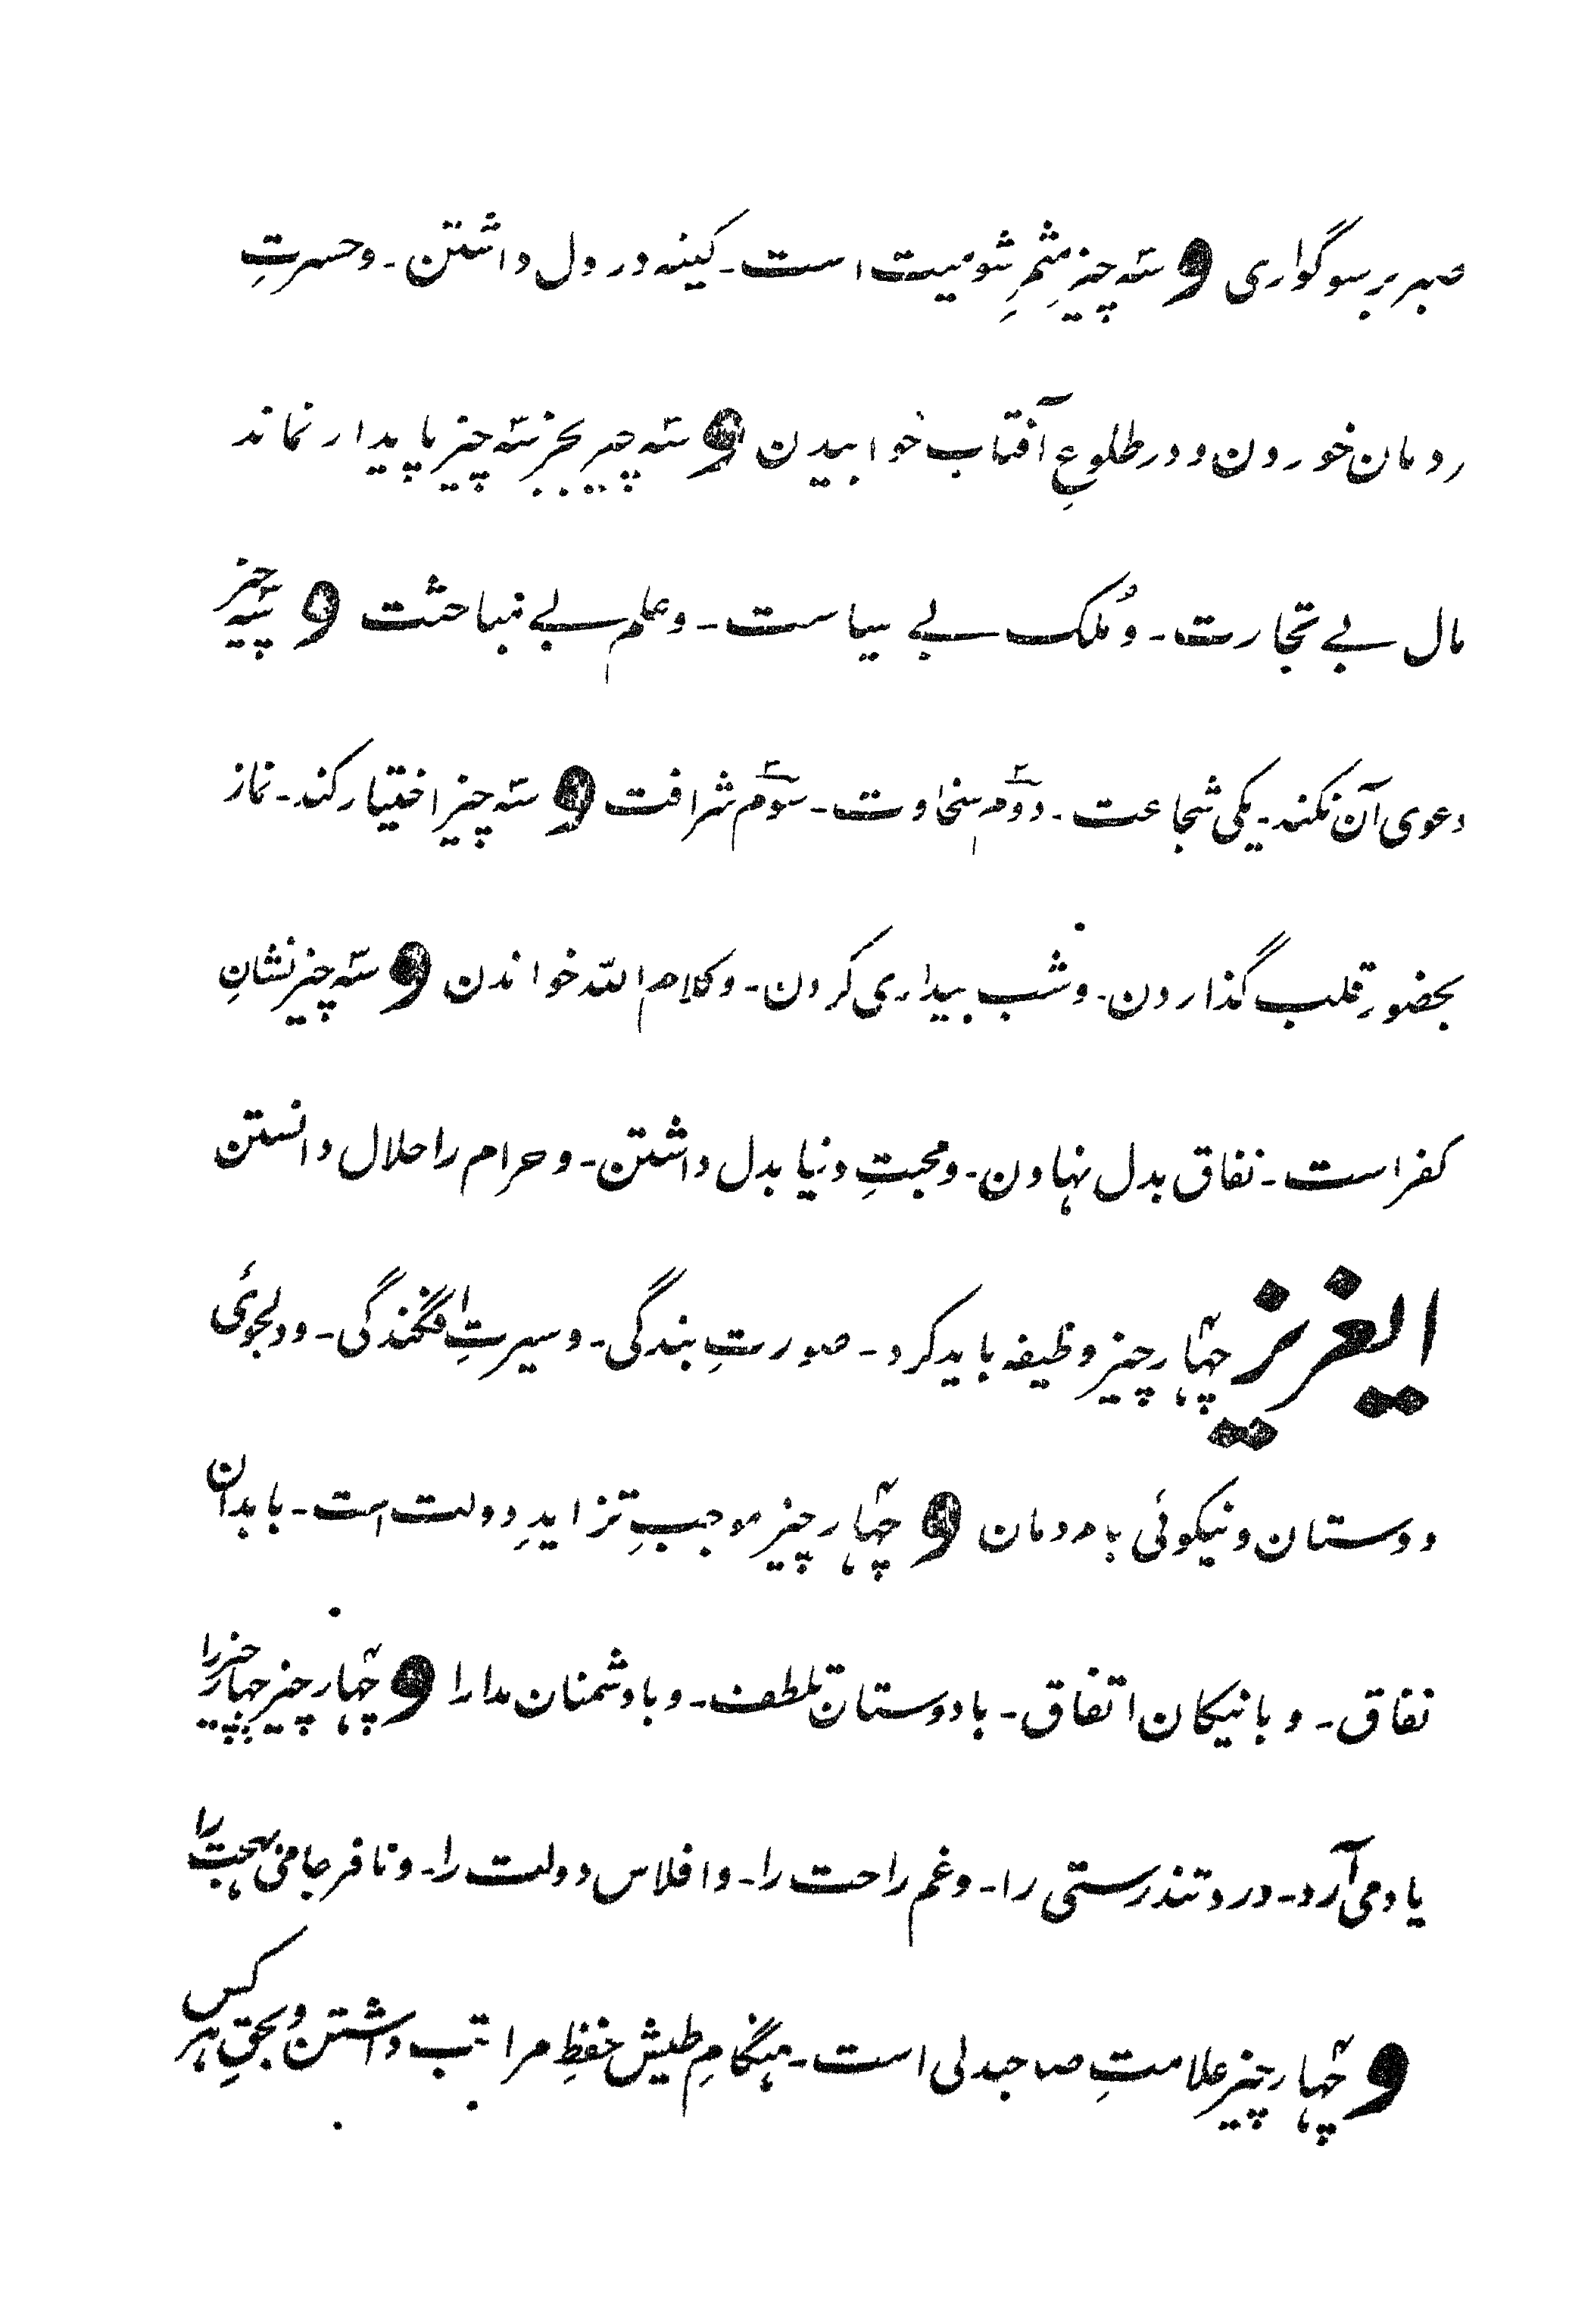 صبر بر سوگواری و سه چیز مثمرِ شومیت است۔ کینه در دل داشتن۔ و حسرتِ
دمان خوردن و در طلوعِ آفتاب خوابیدن و سه چیز بجز سه چیز پایدار نماند
مال بے تجارت۔ و مُلک بے سیاست۔ و علم بے مباحثت و سه چیز
دعوی آن نکند۔ یکی شجاعت۔ دوّم سخاوت۔ سوّم شرافت و سه چیز اختیار کند۔ نماز
بحضورِ قلب گذاردن۔ و شب بیداری کردن۔ و کلام الله خواندن و سه چیز نشانِ
کفر است۔ نفاق بدل نهادن۔ و محبتِ دنیا بدل داشتن۔ و حرام را حلال دانستن
ایعزیز چهار چیز وظیفه باید کرد۔ صورتِ بندگی۔ و سیرتِ افگندگی۔ و دلجوئی
دوستان و نیکوئی بامردمان و چهار چیز موجبِ تزایدِ دولت است۔ بابدان
نفاق۔ و بانیکان اتفاق۔ بادوستان تلطف۔ و بادشمنان مدارا و چهار چیز چهار چیز را
یاد می آرد۔ درد تندرستی را۔ و غم راحت را۔ و افلاس دولت را۔ و نافرجامی بهجت را
و چهار چیز علامتِ صاحبدلی است۔ هنگامِ طیش حفظِ مراتب داشتن و بحقِ هر کس